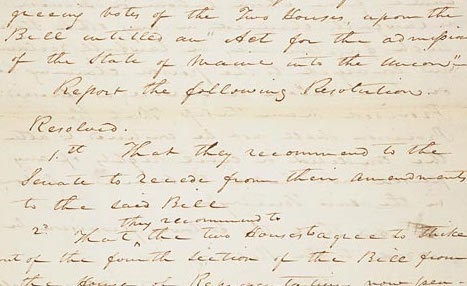 greeing votes of the Two Houses, upon the
Bill entitled an "Act for the admission
of the State of Maine into the Union"—
Report the following Resolution.
Resolved.
1.st That they recommend to the
Senate to recede from their amendments
to the said Bill
they recommend to
2d That ^ the two Houses to agree to strike
out of the fourth section of the Bill from
the House of Representatives now pen-